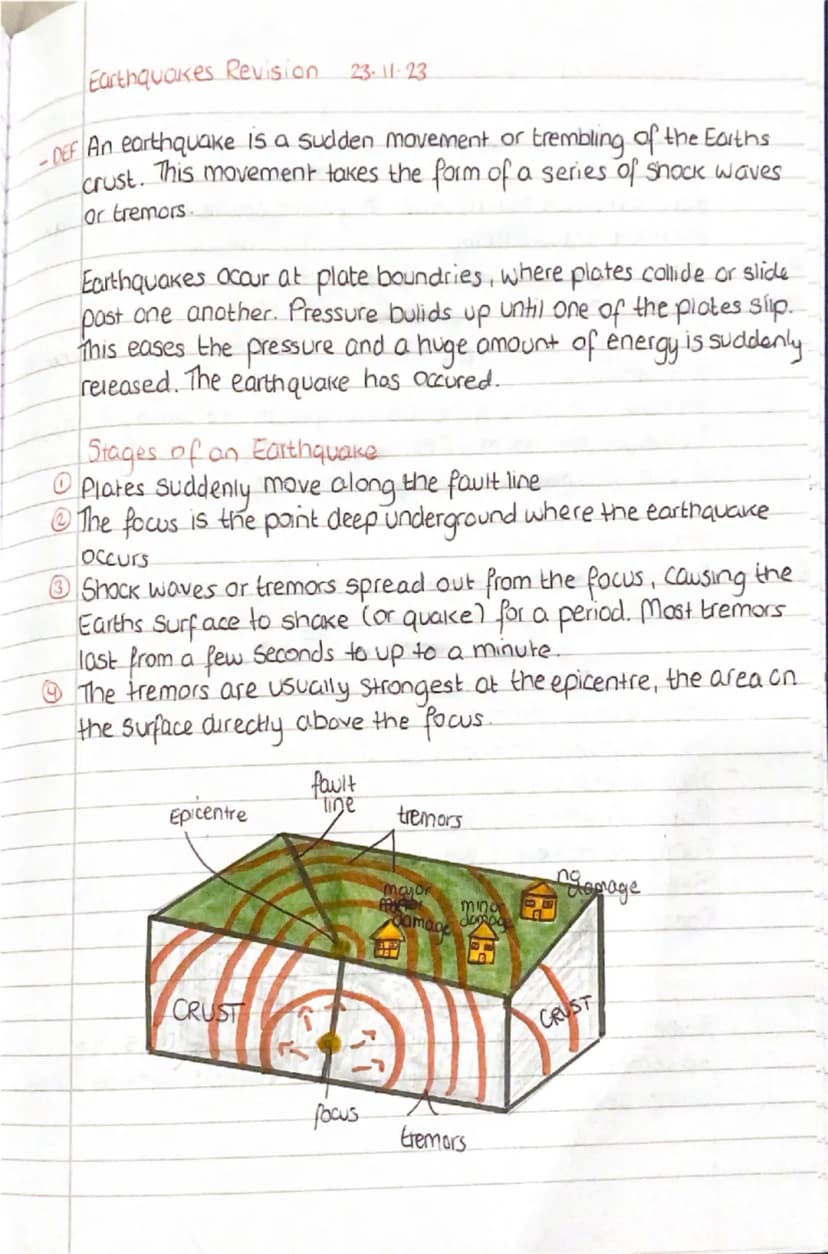 Earthquakes Revision 23.11.23
- DEF An earthquake is a sudden movement or trembling of the Earths
crust. This movement takes the form of a series of shock waves
or tremors.
Earthquakes occur at plate boundries, where plates collide or slide
past one another. Pressure bulids up until one of the plates slip.
This eases the pressure and a huge amount of energy is suddenly
released. The earthquake has occured.
Stages of an Earthquake
① Plates suddenly move along the fault line
② The focus is the point deep underground where the earthquake
occurs
③ Shock waves or tremors spread out from the focus, causing the
Earths surface to shake (or quake) for a period. Most tremors
last from a few seconds to up to a minute.
④ The tremors are usually strongest at the epicentre, the area on
the surface directly above the focus.
fault
line
Epicentre
tremors
major
damage
minor
damage
no
damage
CRUST
CRUST
focus
tremors